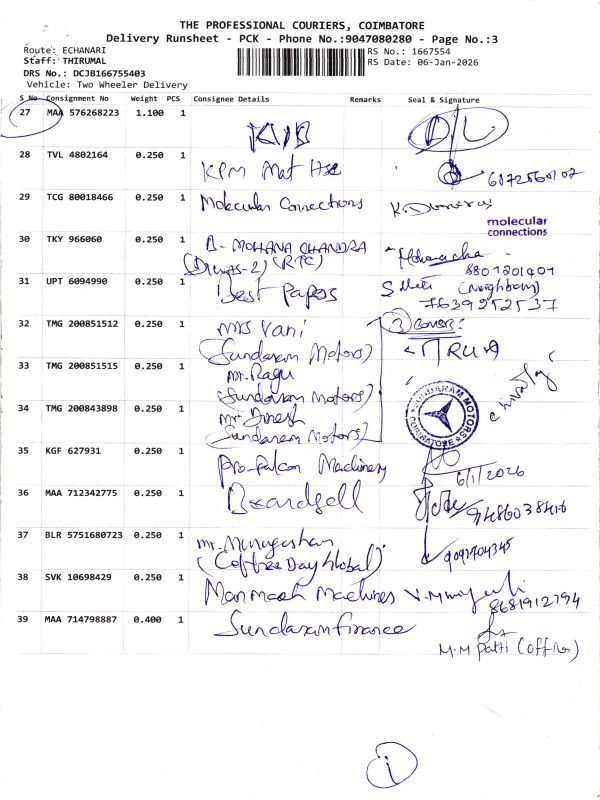 THE PROFESSIONAL COURIERS, COIMBATORE
Delivery Runsheet - PCK - Phone No.:9047080280 - Page No.:3
Route: ECHANARI
RS No.: 1667554
Staff: THIRUMAL
RS Date: 06-Jan-2026
DRS No.: DCJB166755403
Vehicle: Two Wheeler Delivery
S No Consignment No Weight PCS Consignee Details Remarks Seal & Signature
27 MAA 576268223 1.100 1
28 TVL 4802164 0.250 1 KPM Mat Hse
29 TCG 80018466 0.250 1 Molecular Connections
molecular
connections
30 TKY 966060 0.250 1 B- MOHANA CHANDRA
(RTC)
8807201401
31 UPT 6094990 0.250 1 Best Papers
(Neighbour)
7639252537
32 TMG 200851512 0.250 1 Mrs Vani
(Sundaram Motors)
33 TMG 200851515 0.250 1 Mr. Ragu
(Sundaram Motors)
34 TMG 200843898 0.250 1 Mr Dinesh
(Sundaram Motors)
SUNDARAM MOTORS
COIMBATORE
35 KGF 627931 0.250 1 Pro-falcon Machinery
6/1/2026
36 MAA 712342775 0.250 1 Beardsell
9486038416
37 BLR 5751680723 0.250 1 Mr. Murugeshan
(Coffee Day Global)
9091704345
38 SVK 10698429 0.250 1 Manmash Machines
8681912794
39 MAA 714798887 0.400 1 Sundaram finance
i